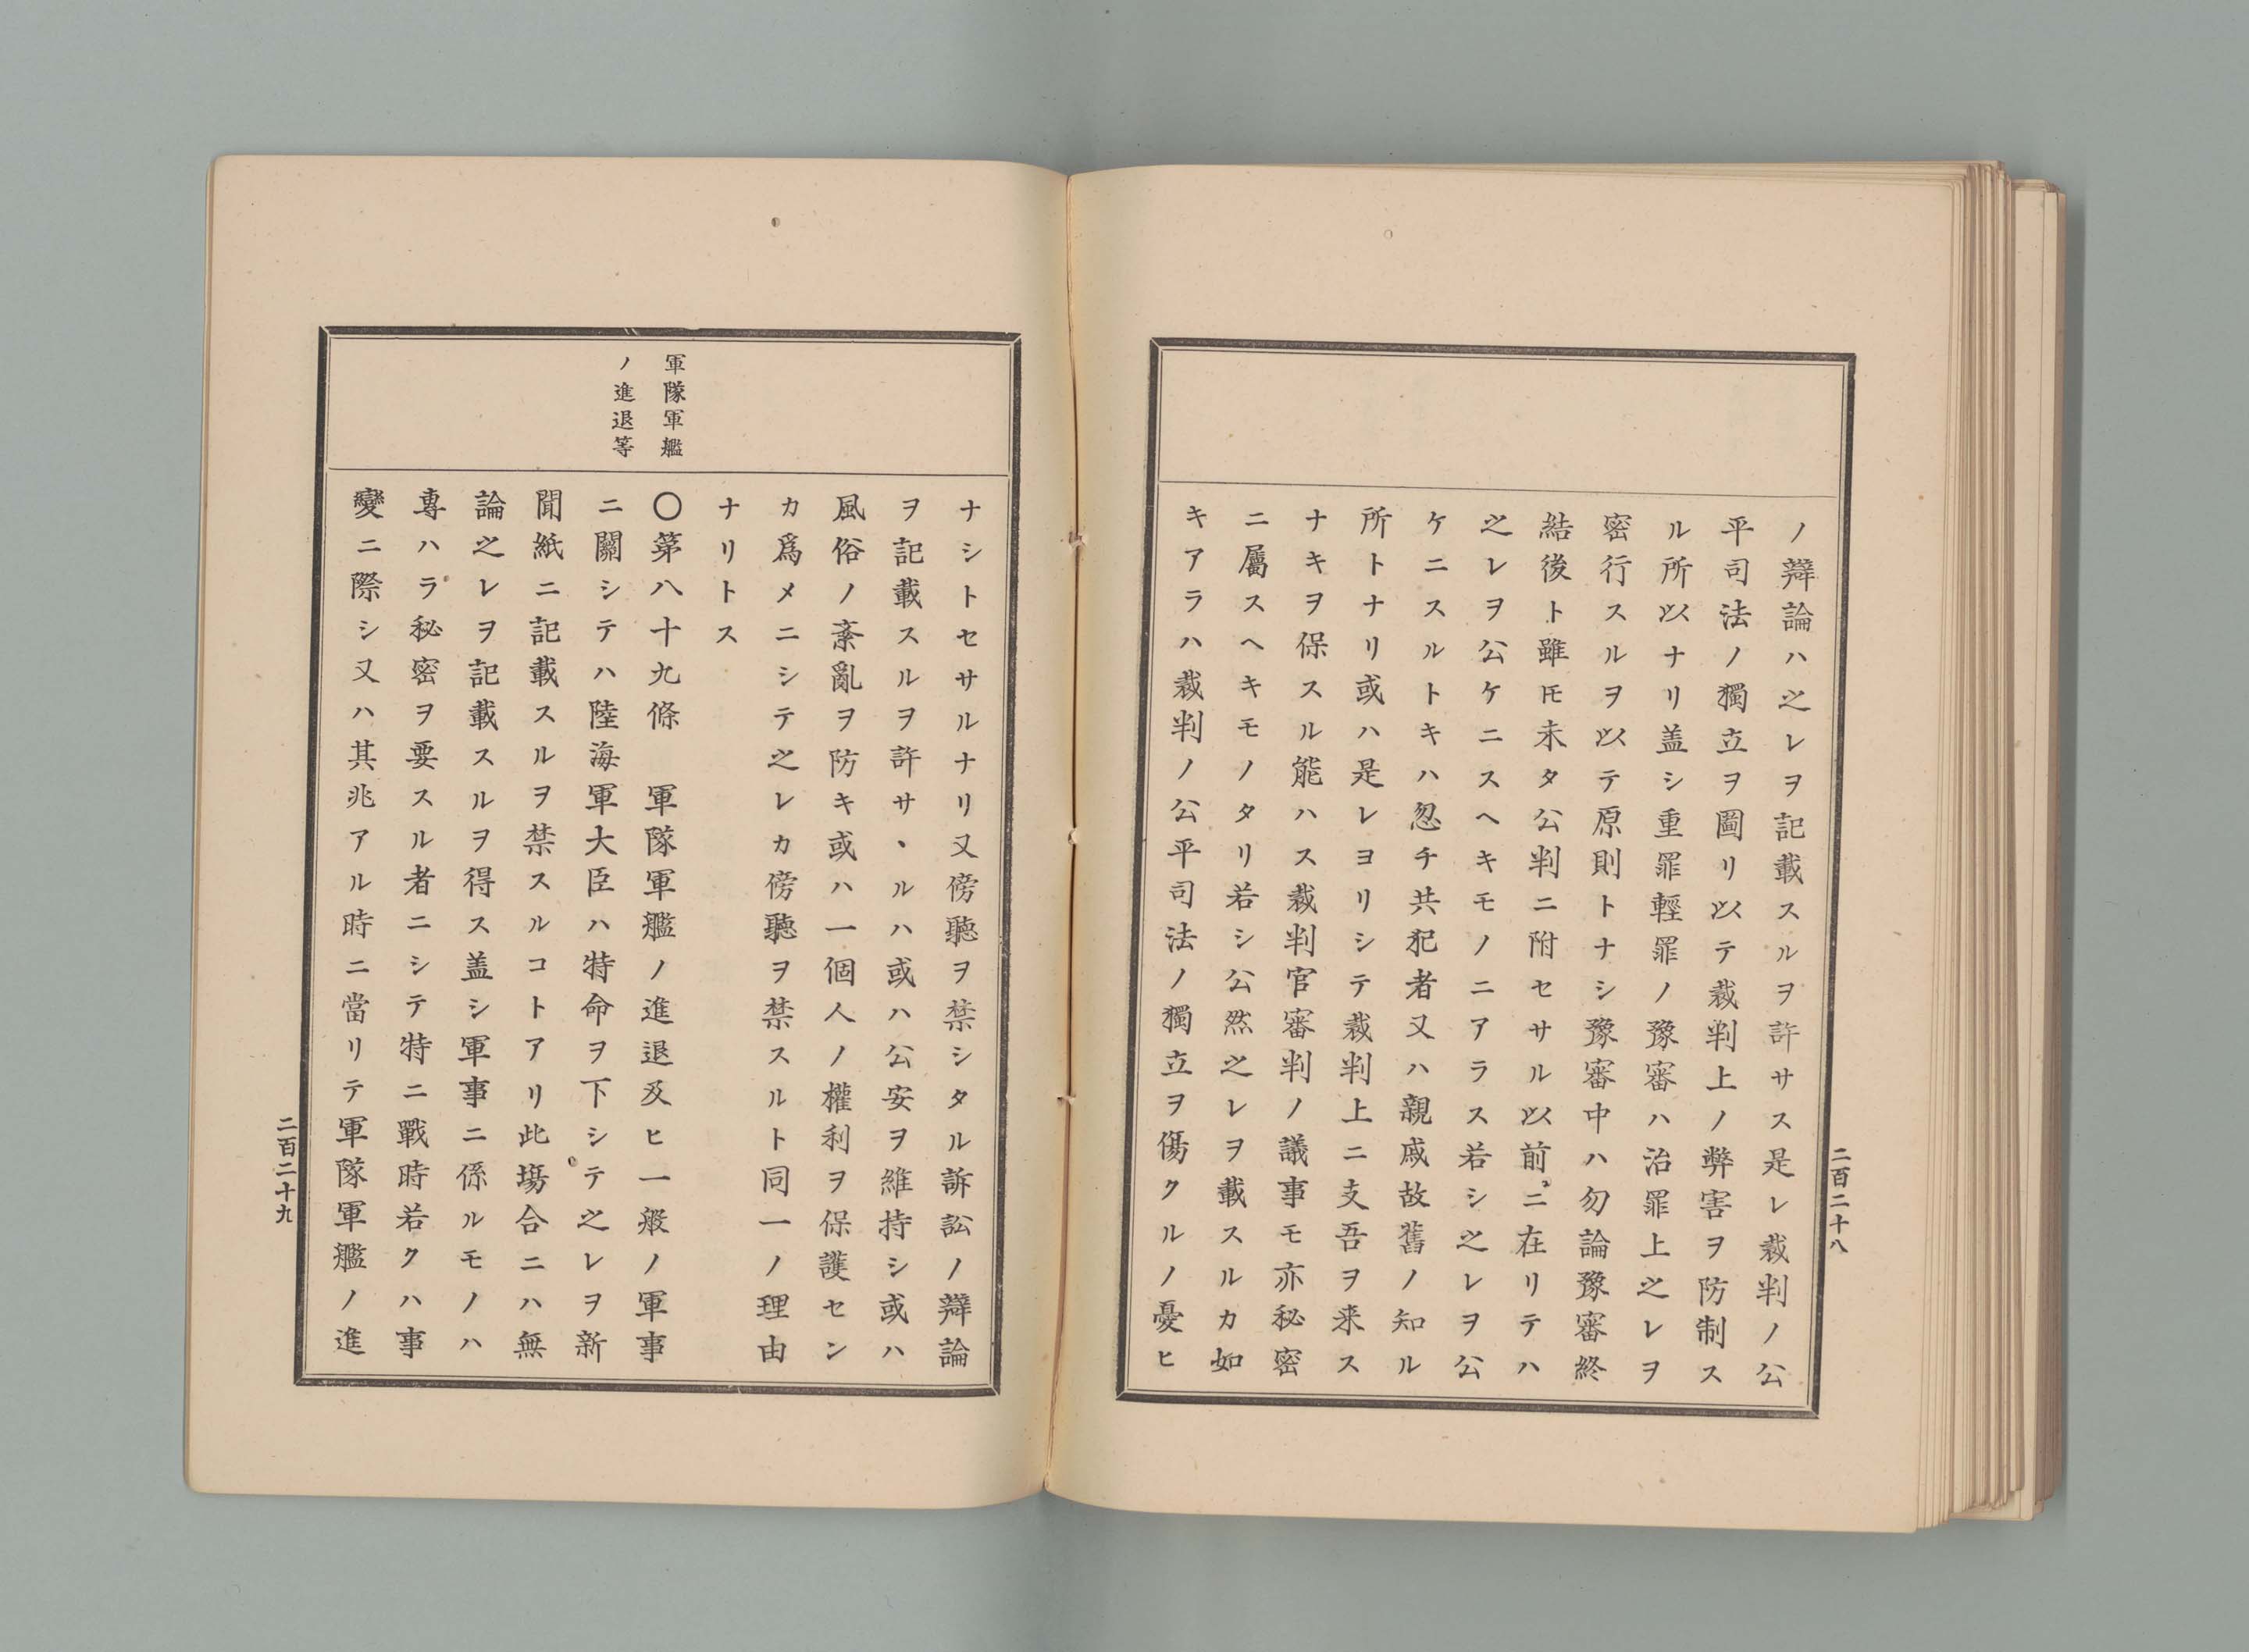 ノ辯論ハ之レヲ記載スルヲ許サス是レ裁判ノ公
平司法ノ獨立ヲ圖リ以テ裁判上ノ弊害ヲ防制ス
ル所以ナリ盖シ重罪輕罪ノ豫審ハ治罪上之レヲ
密行スルヲ以テ原則トナシ豫審中ハ勿論豫審終
結後ト雖𪜈未タ公判ニ附セサル以前ニ在リテハ
之レヲ公ケニスヘキモノニアラス若シ之レヲ公
ケニスルトキハ忽チ共犯者又ハ親戚故舊ノ知ル
所トナリ或ハ是レヨリシテ裁判上ニ支吾ヲ来ス
ナキヲ保スル能ハス裁判官審判ノ議事モ亦秘密
ニ屬スヘキモノタリ若シ公然之レヲ載スルカ如
キアラハ裁判ノ公平司法ノ獨立ヲ傷クルノ憂ヒ
二百二十八
軍隊軍艦
ノ進退等
ナシトセサルナリ又傍聽ヲ禁シタル訴訟ノ辯論
ヲ記載スルヲ許サヽルハ或ハ公安ヲ維持シ或ハ
風俗ノ紊亂ヲ防キ或ハ一個人ノ權利ヲ保護セン
カ爲メニシテ之レカ傍聽ヲ禁スルト同一ノ理由
ナリトス
〇第八十九條　軍隊軍艦ノ進退及ヒ一般ノ軍事
ニ關シテハ陸海軍大臣ハ特命ヲ下シテ之レヲ新
聞紙ニ記載スルヲ禁スルコトアリ此塲合ニハ無
論之レヲ記載スルヲ得ス盖シ軍事ニ係ルモノハ
專ハラ秘密ヲ要スル者ニシテ特ニ戰時若クハ事
變ニ際シ又ハ其兆アル時ニ當リテ軍隊軍艦ノ進
二百二十九